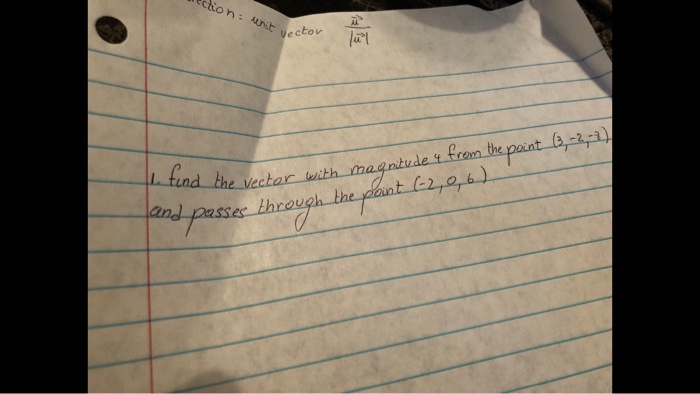 ection: unit vector u⃗ / |u⃗|
1. find the vector with magnitude 4 from the point (3,-2,
and passes through the point (-2,0,6)